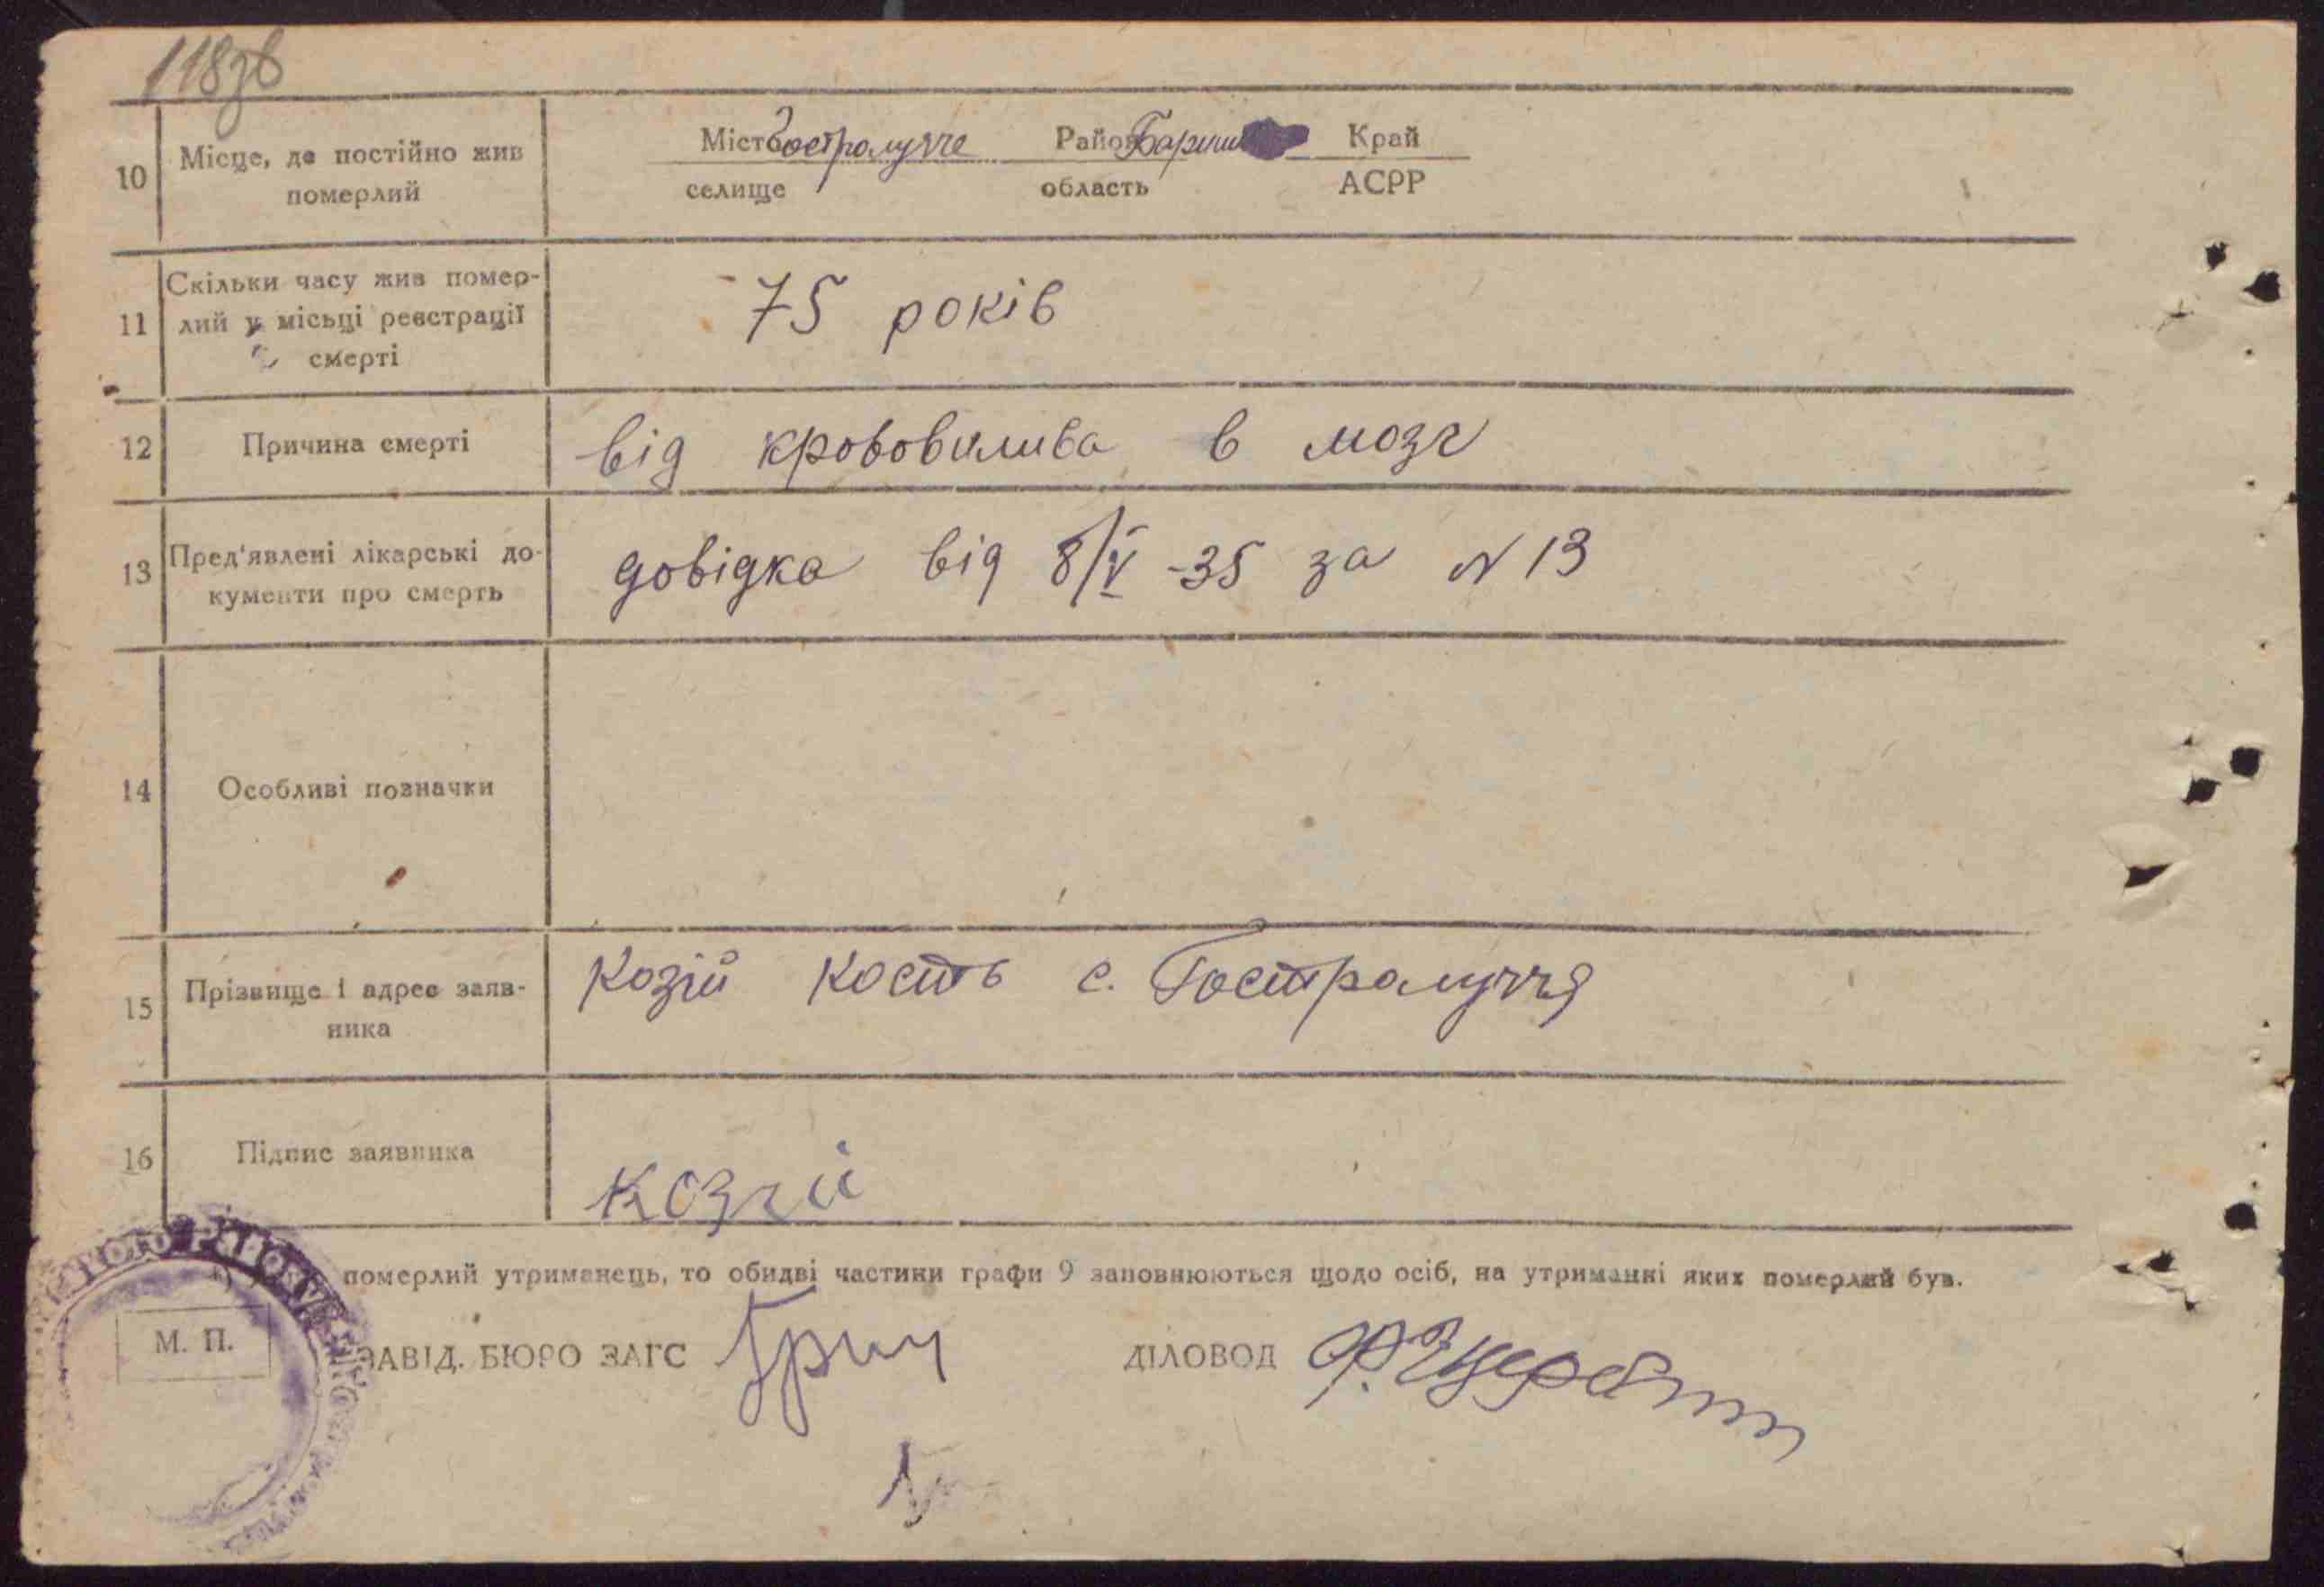 118зв
10 Місце, де постійно жив померлий
Місто Гостролучче Район Край
селище область АСРР
11 Скільки часу жив помер-
лий у місьці реєстрації
смерті
75 років
12 Причина смерті
від крововилива в мозг
13 Пред'явлені лікарські до-
кументи про смерть
довідка від 8/V -35 за N 13
14 Особливі позначки
15 Прізвище і адрес заяв-
ника
Козій Кость с. Гостролуччя
16 Підпис заявника
Козій
померлий утриманець, то обидві частини графи 9 заповнюються щодо осіб, на утриманні яких померлий був.
М. П.
ЗАВІД. БЮРО ЗАГС
ДІЛОВОД